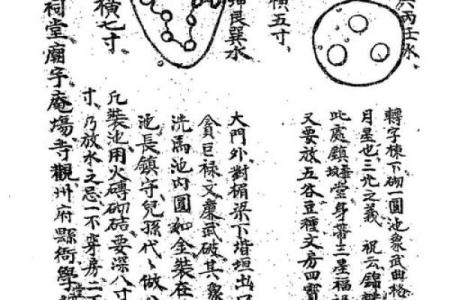 丙壬水
轉字棟下砌一圓池象武曲格
月星也三光之義 祝云錦
此處鎮華堂身帶二星福
又要放五谷豆種文房四寶
艮巽水
橫五寸
大門外對楣梁下堦垣出
貪巨禄文廉武破其象
洗馬池内圓如金裝在
池長鎮守兒孫代做
橫七寸
凡裝池用火磚砌結要深八寸
寸乃放水之忌一不穿房二
祠堂廟宇庵塲寺觀州府縣衙學